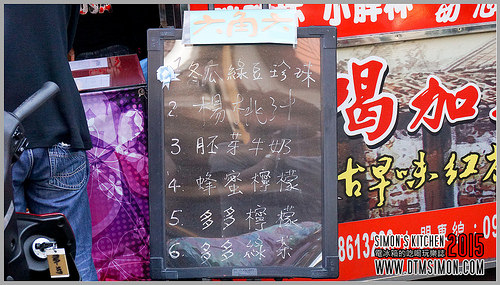 六角六
1.冬瓜綠豆珍珠
2. 楊桃汁
3 胚芽牛奶
4. 蜂蜜檸檬
5. 多多檸檬
6. 多多綠茶
喝加
古早味紅
8613
專線:09
SIMON'S KITCHEN 2015
電冰箱的吃喝玩樂誌
WWW.DTMSIMON.COM